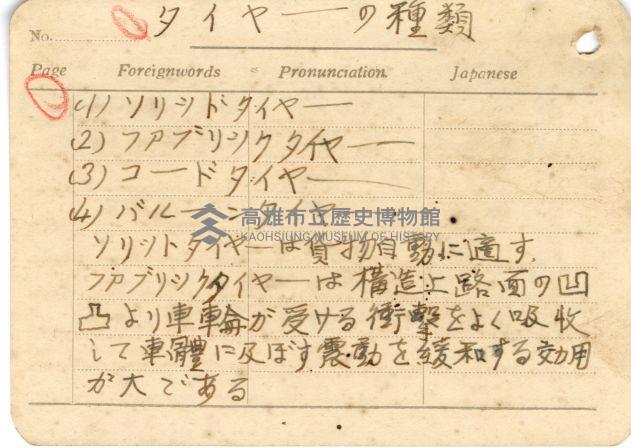 タイヤーの種類
No.
Page Foreignwords Pronunciation. Japanese
(1) ソリッドタイヤー
(2) ファブリックタイヤー
(3) コードタイヤー
(4) バルーンタイヤ
高雄市立歷史博物館
KAOHSIUNG MUSEUM OF HISTORY
ソリットタイヤーは貨物自動に適す.
ファブリックタイヤーは構造上路面の凹
凸より車輪が受ける衝撃をよく吸收
して車體に及ぼす震動を緩和する効用
が大である